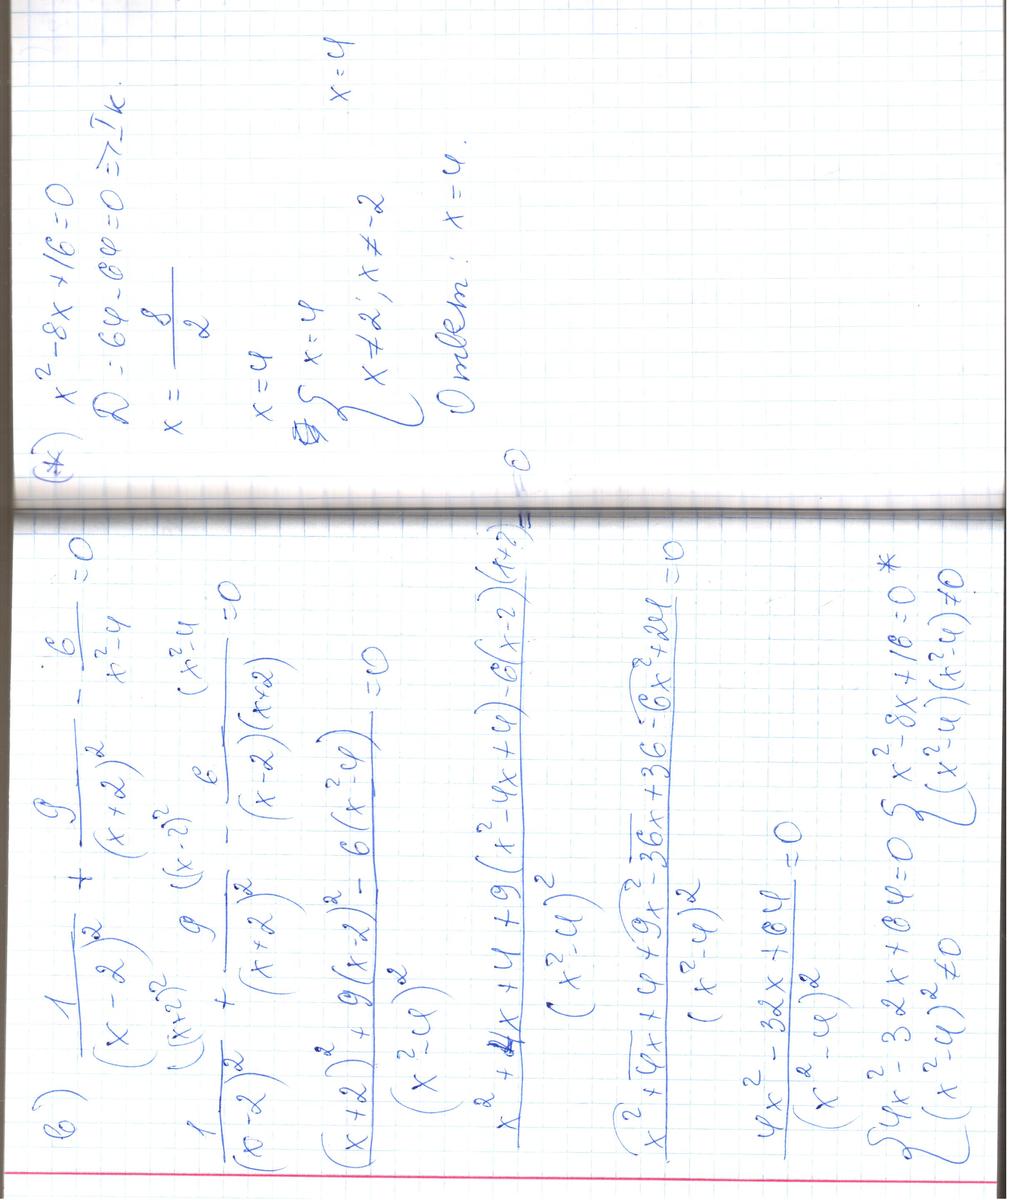 в) 1/(x-2)² + 9/(x+2)² - 6/(x²-4) = 0
1/(x-2)² ((x+2)² + 9/(x+2)² ((x-2)² - 6/((x-2)(x+2)) (x²-4 = 0
((x+2)² + 9(x-2)² - 6(x²-4))/(x²-4)² = 0
(x² + 4x + 4 + 9(x² - 4x + 4) - 6(x-2)(x+2))/(x²-4)² = = 0
(x² + 4x + 4 + 9x² - 36x + 36 - 6x² + 24)/(x²-4)² = 0
(4x² - 32x + 64)/(x²-4)² = 0
{ 4x² - 32x + 64 = 0 { x² - 8x + 16 = 0 *
(x²-4)² ≠ 0 (x²-4)(x²-4) ≠ 0
(*) x² - 8x + 16 = 0
D = 64 - 64 = 0 => 1 к.
x = 8/2
x = 4
{ x = 4
x ≠ 2; x ≠ -2 x = 4
Ответ: x = 4.